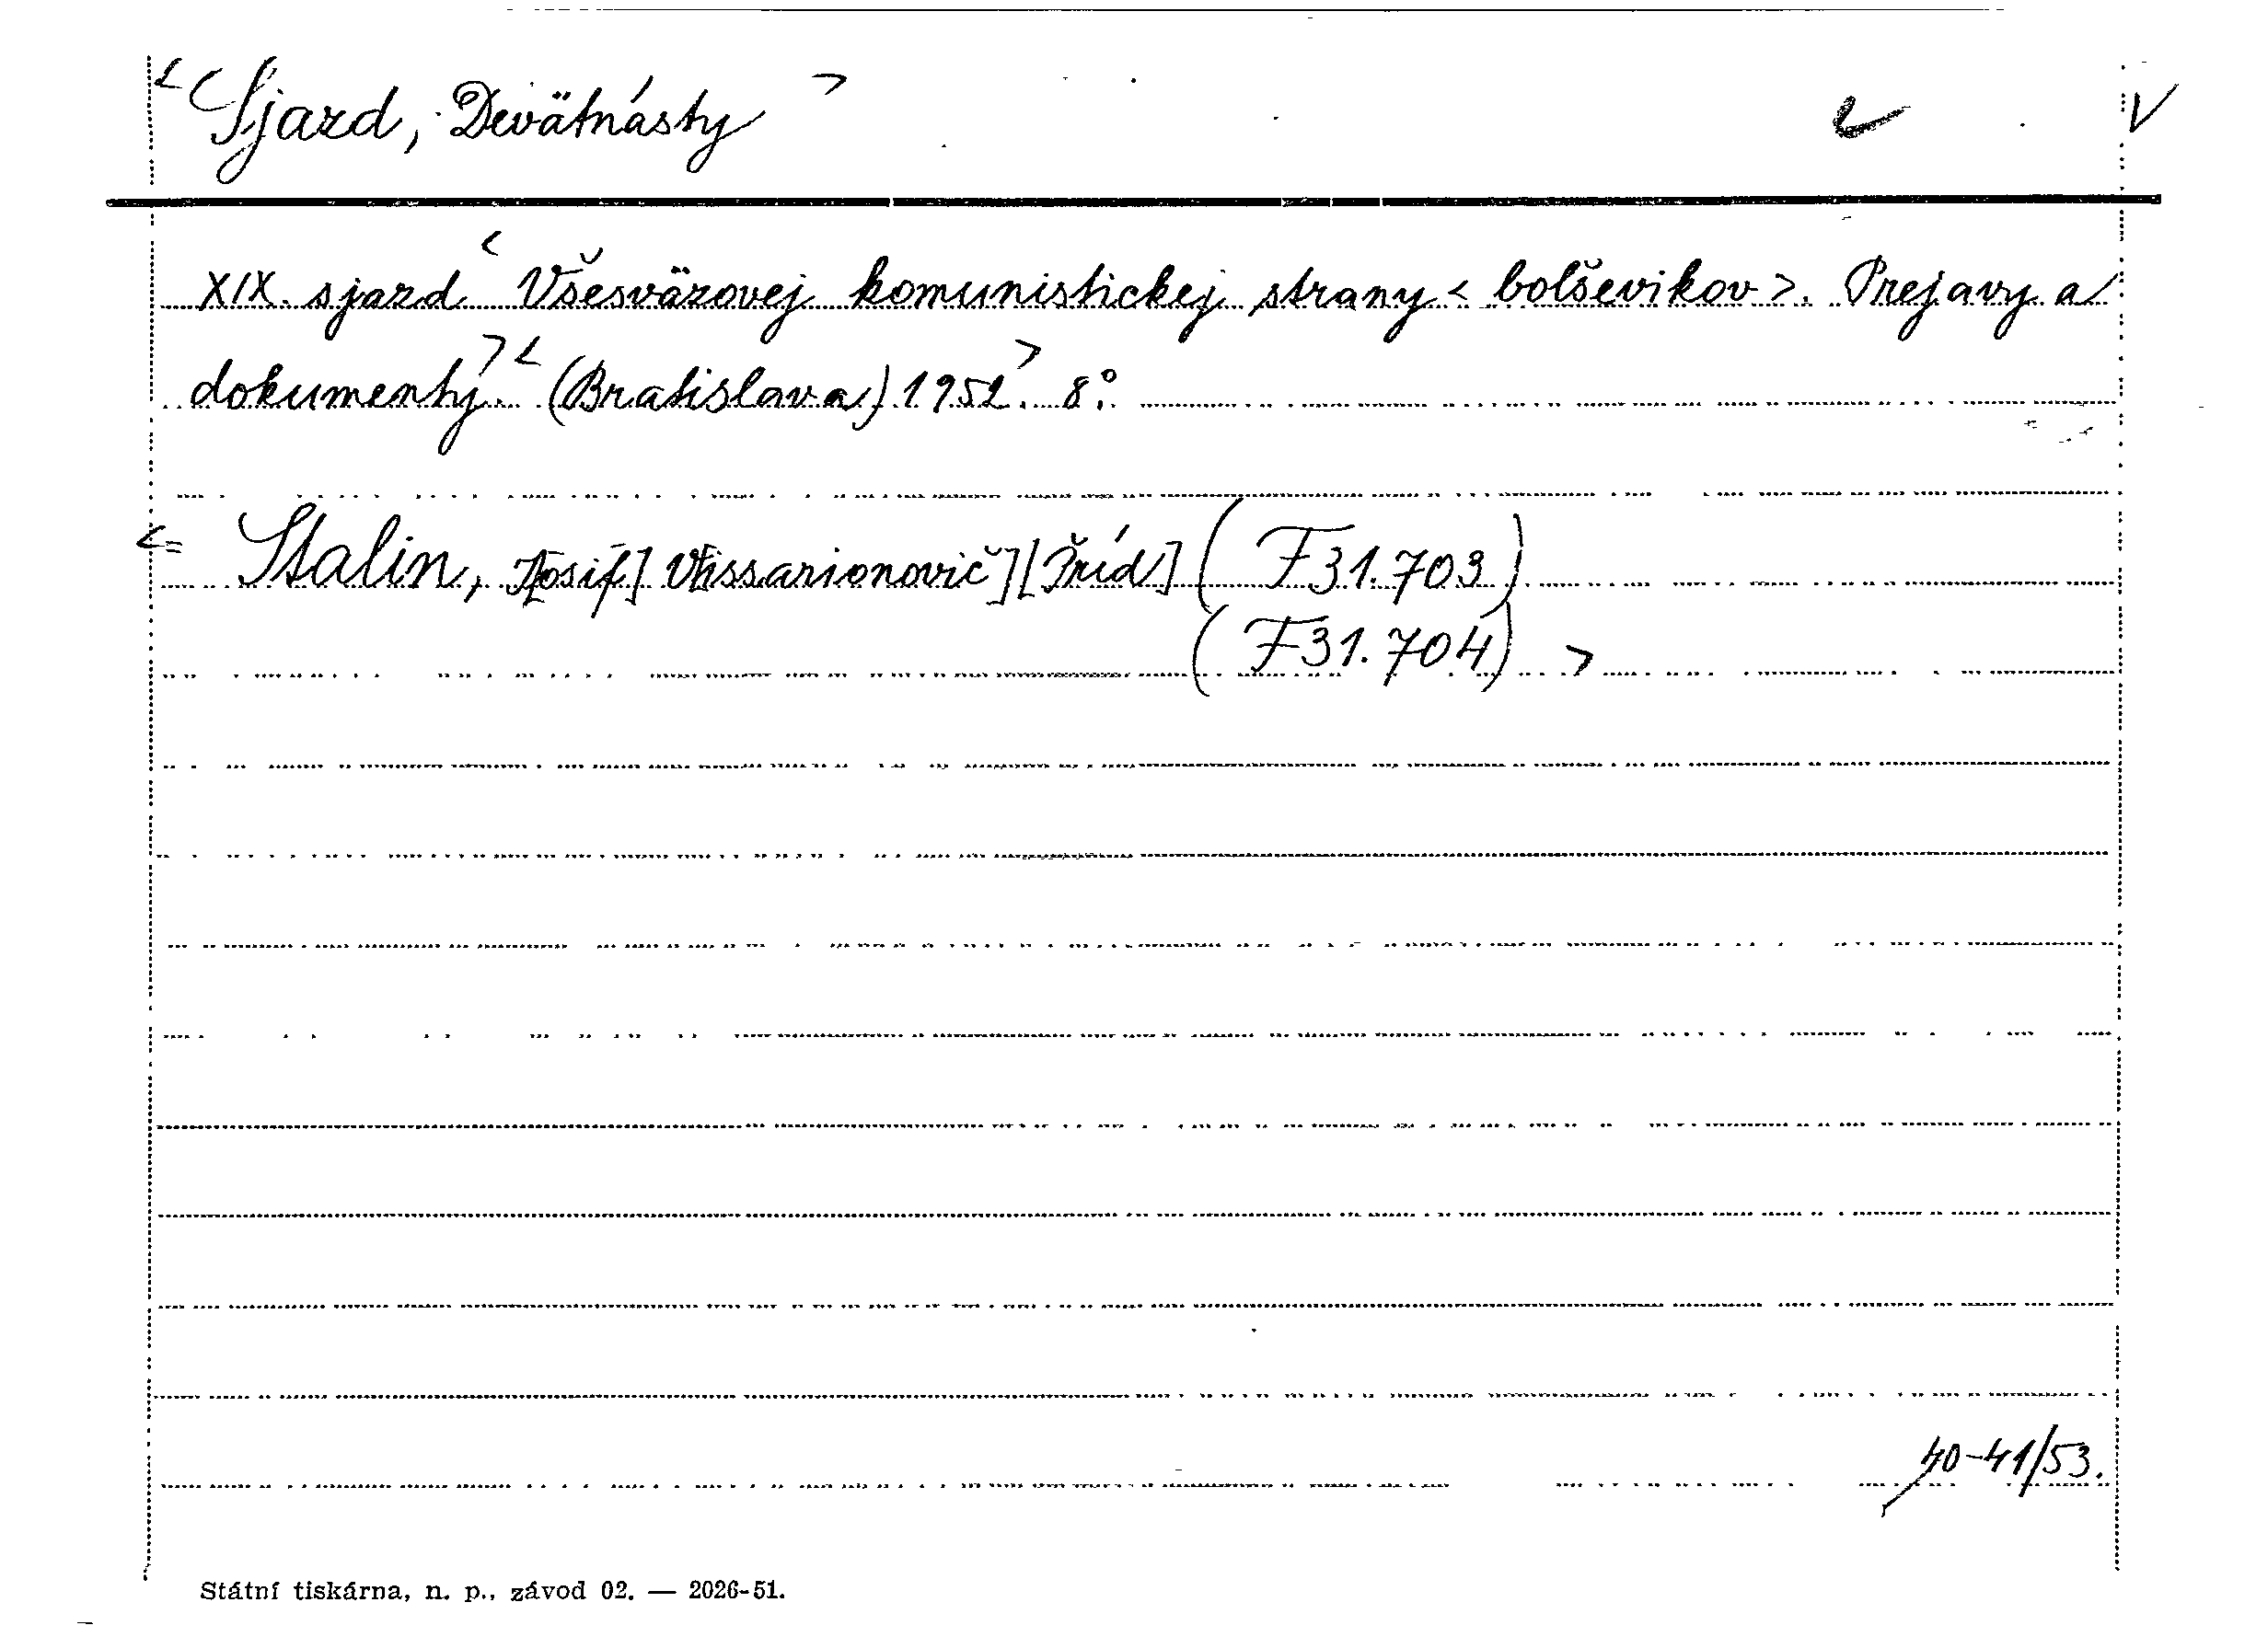 < Sjazd, Devätnásty > V
XIX. sjazd < Všesväzovej komunistickej strany < bolševikov >. Prejavy a
dokumenty. > < (Bratislava) 1952. > 8°.
<= Stalin, J[osif] V[issarionovič] [Příd] (F 31.703)
(F 31.704) >
40-41/53.
Státní tiskárna, n. p., závod 02. — 2026-51.